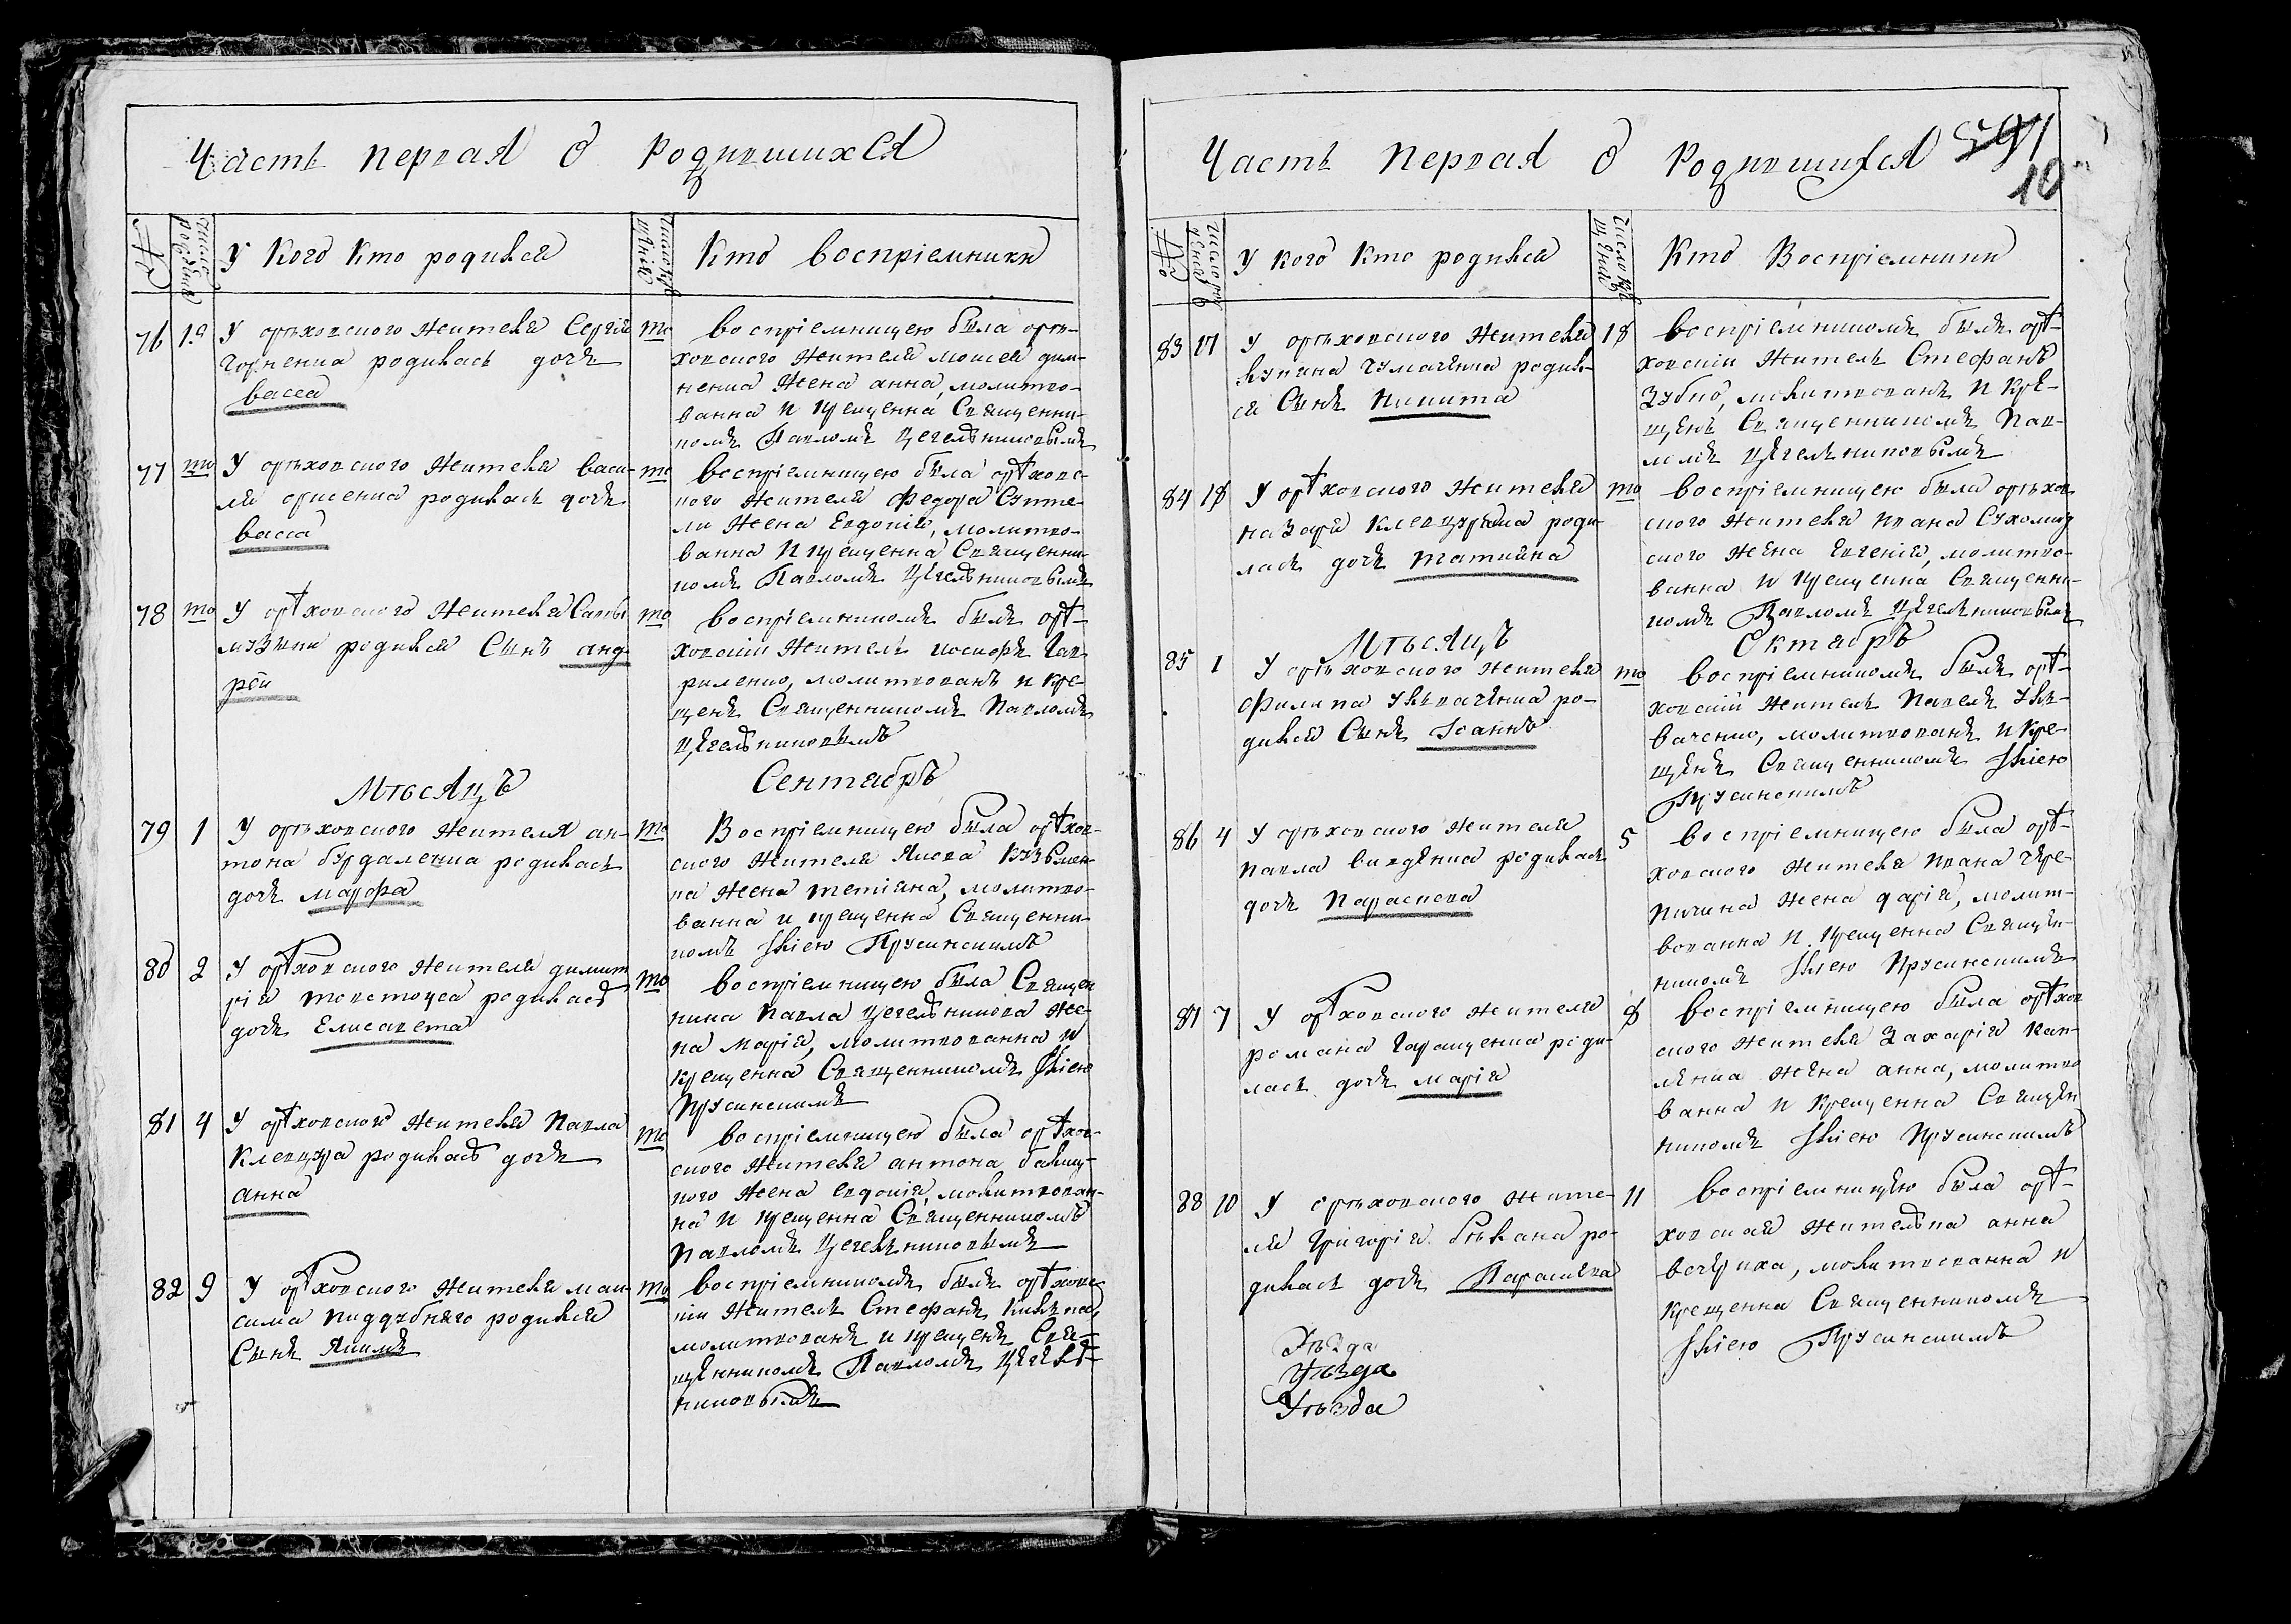 Часть первая о родившихся
№
число рождения
У кого кто родился
число крещения
Кто воспріемники
76 19 У орѣховского жителя Сергія
Горненка родилась дочь
васса
то воспріемницею была орѣ-
ховского жителя моисея дим-
ненка жена анна, молитво-
ванна и крещенна Священни-
комъ Павломъ Цегельниковымъ
77 то У орѣховского жителя васи-
лія орисенка родилась дочь
васса
то воспріемницею была орѣховс-
кого жителя Федора Супте-
ли жена Евдокія, молитво-
ванна и крещенна Священни-
комъ Павломъ Цегельниковымъ
78 то У орѣховского жителя Саввы
музыки родился Сынъ анд-
рей
то воспріемникомъ былъ орѣ-
ховскій житель иосифъ гав-
риленко, молитвованъ и кре-
щенъ Священникомъ Павломъ
Цегельниковымъ
Мѣсяцъ Сентябрь
79 1 У орѣховского жителя ан-
тона бурдаленка родилась
дочь марфа
то Воспріемницею была орѣхов-
ского жителя Якова Кузьмен-
ка жена татіяна, молитво-
ванна и крещенна Священни-
комъ Іліею Прусинскимъ
80 2 У орѣховского жителя димит
рія товстоуса родилась
дочь Елисавета
то воспріемницею была Священ
ника Павла Цегельникова же-
на Марія, молитвованна и
крещенна Священникомъ Іліею
Прусинскимъ
81 4 У орѣховского жителя Павла
Клевцура родилась дочь
анна
то воспріемницею была орѣхов-
ского жителя антона бакиц-
кого жена евдокія, молитвован-
на и крещенна Священникомъ
Павломъ Цегельниковымъ
82 9 У орѣховского жителя мак-
сима пиддубного родился
Сынъ Якимъ
то воспріемникомъ былъ орѣховс-
кій житель Стефанъ
молитвованъ и крещенъ Свя-
щенникомъ Павломъ Цегель-
никовымъ
Часть первая о родившихся 591
10
№
число рожденія
У кого кто родился
число крещенія
Кто Воспріемники
83 17 У орѣховского жителя
Кипіяна чумаченка родил-
ся Сынъ Никита
18 воспріемникомъ былъ орѣ-
ховскій житель Стефанъ
Зубко, молитвованъ и кре-
щенъ Священникомъ Пав-
ломъ Цегельниковымъ
84 18 У орѣховского жителя
назарія клевцуренка роди-
лась дочь татияна
то воспріемницею была орѣхов
ского жителя ивана Сухомли
ского жена Евгенія, молитво-
ванна и крещенна Священни-
комъ Павломъ Цегельниковымъ
Мѣсяцъ Октябрь
85 1 У орѣховского жителя
филипа Ульваченка ро-
дился Сынъ Іоаннъ
то воспріемникомъ былъ орѣ-
ховскій житель Павелъ Уль-
ваченко, молитвованъ и кре-
щенъ Священникомъ Іліею
Прусинскимъ
86 4 У орѣховского жителя
Павла родилась
дочь Параскева
5 воспріемницею была орѣ-
ховского жителя Ивана чере-
пичина жена дарія, молит-
вованна и крещенна Священ-
никомъ Іліею Прусинскимъ
87 7 У орѣховского жителя
романа Геращенка роди-
лась дочь марія
8 воспріемницею была орѣхов
ского жителя Захарія кап-
ленка жена анна, молитво
ванна и крещенна Священ
никомъ Іліею Прусинскимъ
88 10 У орѣховского жите-
ля григорія бѣлкана ро-
дилась дочь Парасћева
11 воспріемницею была орѣ-
ховская жителька анна
вечериха, молитвованна и
крещенна Священникомъ
Іліею Прусинскимъ
Уѣзда
Уѣзда
Уѣзда